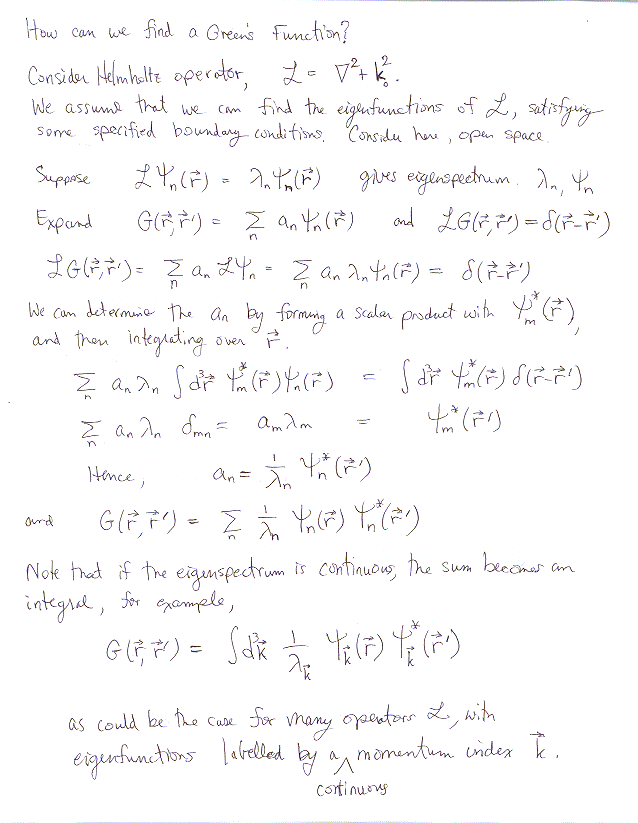 How can we find a Green's Function?
Consider Helmholtz operator, ℒ = ∇² + k₀².
We assume that we can find the eigenfunctions of ℒ, satisfying
some specified boundary conditions. Consider here, open space.
Suppose ℒψₙ(r⃗) = λₙψₙ(r⃗) gives eigenspectrum. λₙ, ψₙ
Expand G(r⃗,r⃗') = Σₙ aₙψₙ(r⃗) and ℒG(r⃗,r⃗') = δ(r⃗-r⃗')
ℒG(r⃗,r⃗') = Σₙ aₙℒψₙ = Σₙ aₙλₙψₙ(r⃗) = δ(r⃗-r⃗')
We can determine the aₙ by forming a scalar product with ψₘ*(r⃗),
and then integrating over r⃗.
Σₙ aₙλₙ ∫d³r⃗ ψₘ*(r⃗)ψₙ(r⃗) = ∫dr⃗ ψₘ*(r⃗) δ(r⃗-r⃗')
Σₙ aₙλₙ δₘₙ = aₘλₘ = ψₘ*(r⃗')
Hence, aₙ = 1/λₙ ψₙ*(r⃗')
and G(r⃗,r⃗') = Σₙ 1/λₙ ψₙ(r⃗) ψₙ*(r⃗')
Note that if the eigenspectrum is continuous, the sum becomes an
integral, for example,
G(r⃗,r⃗') = ∫d³k⃗ 1/λ_k⃗ ψ_k⃗(r⃗) ψ_k⃗*(r⃗')
as could be the case for many operators ℒ, with
eigenfunctions labelled by a ^ momentum index k⃗.
continuous